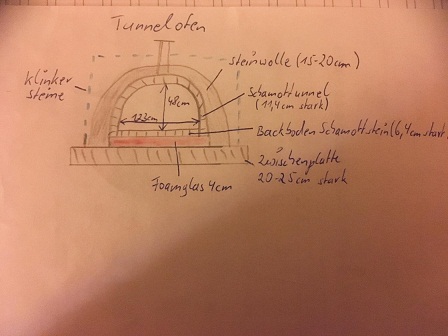 Tunnelofen
Steinwolle (15-20cm)
Klinker
steine
Schamottunnel
(11,4cm stark)
48cm
123cm
Backboden Schamottstein (6,4cm stark)
Zwischenplatte
20-25cm stark
Foamglas 4cm